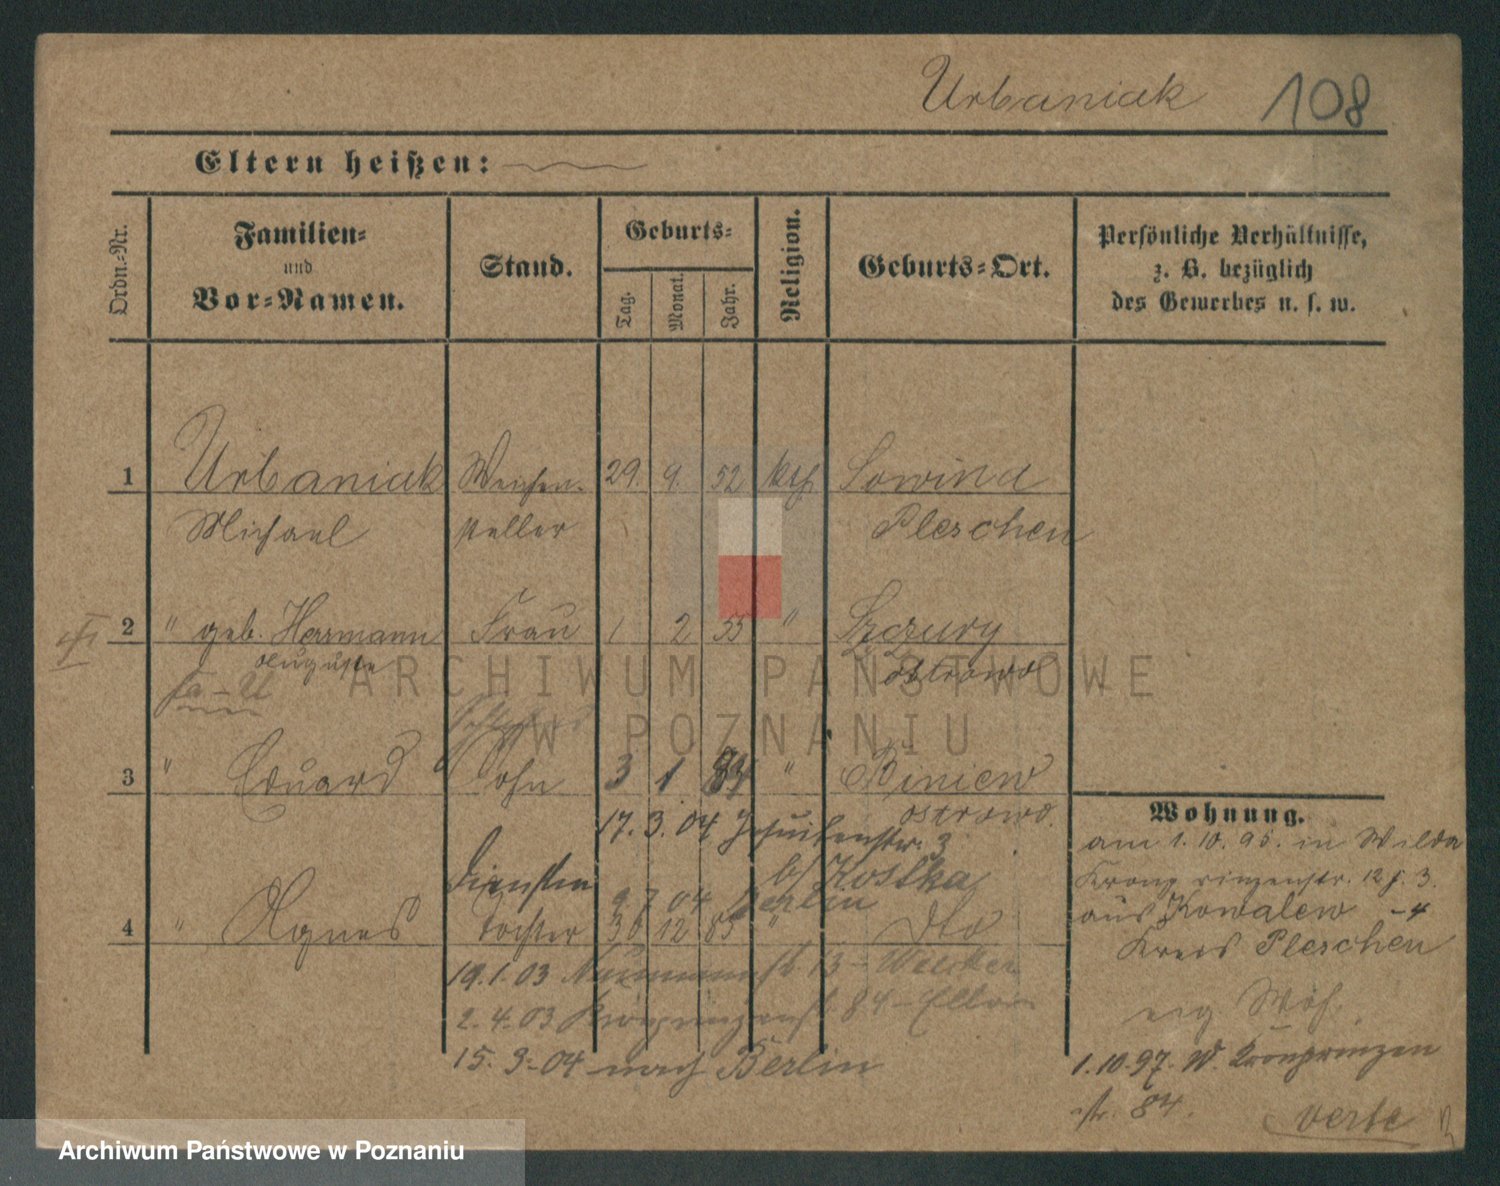 Urbaniak 108
Eltern heißen:
Ordn.-Nr.
Familien-
und
Vor-Namen.
Stand.
Geburts-
Tag.
Monat.
Jahr.
Religion.
Geburts-Ort.
Persönliche Verhältnisse,
z. B. bezüglich
des Gewerbes u. s. w.
1 Urbaniak Weichen- 29. 9. 52 kth Sowina
Michael steller Pleschen
2 " geb. Herrmann Frau 1 2 55 " Szczury
Auguste Ostrowo
ARCHIWUM PAŃSTWOWE
W POZNANIU
3 " Eduard Sohn 3 1 84 " Biniew
Ostrowo.
17. 3. 04 Jesuitenstr. 3
b/ Kostka
9. 7 04 Berlin
4 " Agnes Tochter 30 12 85 " dto
19. 1. 03 Naumannstr 13 -
2. 4. 03 Kronprinzenstr 84 -
15. 3. 04 nach Berlin
Wohnung.
am 1. 10. 95. in Wilda
Kronprinzenstr. 12 f. 3.
aus Kowalew - 4
Kreis Pleschen
eig Woh.
1. 10. 97. W. Kronprinzen
str. 84.
verte
Archiwum Państwowe w Poznaniu